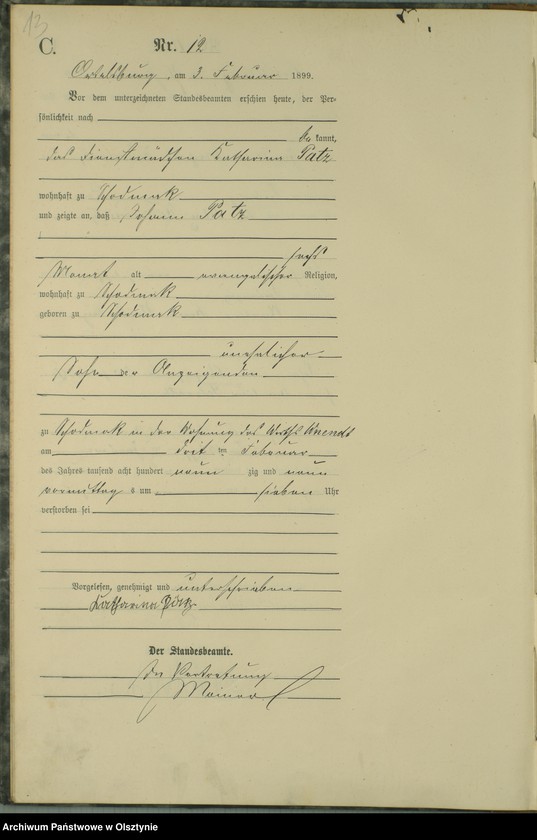 13
C.
Nr. 12
Ortelsburg, am 3. Februar 1899.
Vor dem unterzeichneten Standesbeamten erschien heute, der Per-
sönlichkeit nach
be kannt,
das Dienstmädchen Katharina Patz
wohnhaft zu Schodmak
und zeigte an, daß Johann Patz
sechs
Monat alt evangelischer Religion,
wohnhaft zu Schodmak
geboren zu Schodmak
unehelicher
Sohn der Anzeigenden
zu Schodmak in der Wohnung des Wirths
am Februar
des Jahres tausend acht hundert neun zig und neun
vormittag s um sieben Uhr
verstorben sei
Vorgelesen, genehmigt und unterschrieben
Katharina Patz
Der Standesbeamte.
In Vertretung
Archiwum Państwowe w Olsztynie